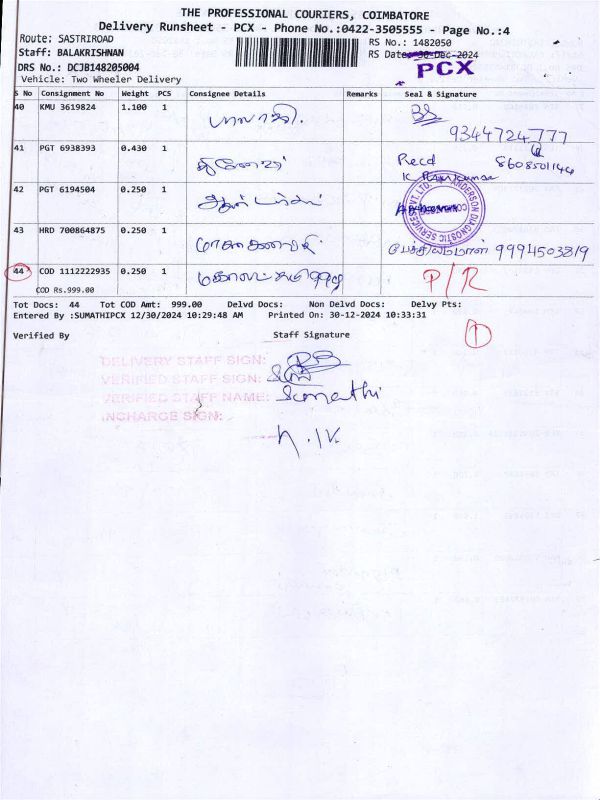 THE PROFESSIONAL COURIERS, COIMBATORE
Delivery Runsheet - PCX - Phone No.:0422-3505555 - Page No.:4
Route: SASTRIROAD
RS No.: 1482050
Staff: BALAKRISHNAN
RS Date: 30-Dec-2024
DRS No.: DCJB148205004
PCX
Vehicle: Two Wheeler Delivery
S No Consignment No Weight PCS Consignee Details Remarks Seal & Signature
40 KMU 3619824 1.100 1 பாலாஜி.
9344724777
41 PGT 6938393 0.430 1 Recd 8608501144
42 PGT 6194504 0.250 1
ANDERSON DIAGNOSTIC SERVICES PVT. LTD.
43 HRD 700864875 0.250 1 பேச்சியம்மாள் 9994503819
44 COD 1112222935 0.250 1 P/R
COD Rs.999.00
Tot Docs: 44 Tot COD Amt: 999.00 Delvd Docs: Non Delvd Docs: Delvy Pts:
Entered By :SUMATHIPCX 12/30/2024 10:29:48 AM Printed On: 30-12-2024 10:33:31
1
Verified By Staff Signature
DELIVERY STAFF SIGN:
VERIFIED STAFF SIGN:
VERIFIED STAFF NAME: Sumathi
INCHARGE SIGN: